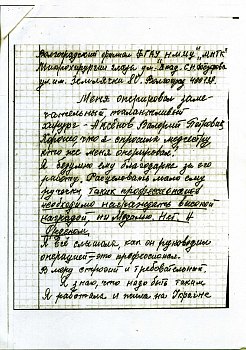 Волгоградский филиал ФГАУ НМИЦ "МНТК"
Микрохирургии глаза им. "Акад. С.Н.Фёдорова
ул. им. Землячки 80. Волгоград 400138.
Меня оперировал заме-
чательный, талантливый
хирург - Аксёнов Валерий Петрович
Хорошо что я спросила медсестру
кто же меня оперировал.
Я безумно ему благодарна за его
работу. Расцеловать мало ему
ручки, таких профессионалов
необходимо награждать высокой
наградой
Я всё слышала, как он руководил
операцией - это профессионал.
В меру строгий и требовательный.
Я знаю, что надо быть таким
Я работала и жила на Украине